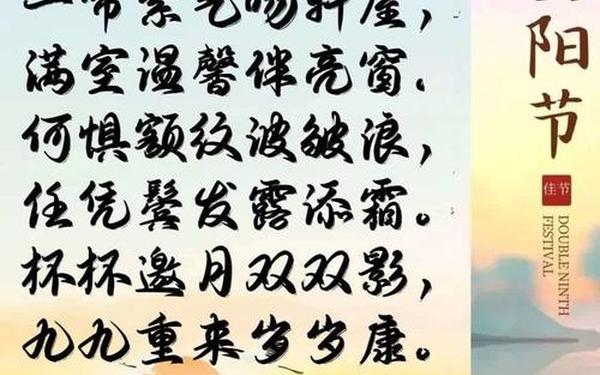 满室温馨伴亮窗。
何惧额纹波皱浪，
任凭鬓发露添霜。
杯杯邀月双双影，
九九重来岁岁康。
阳节
佳节
DOUBLE NINTH
FESTIVAL